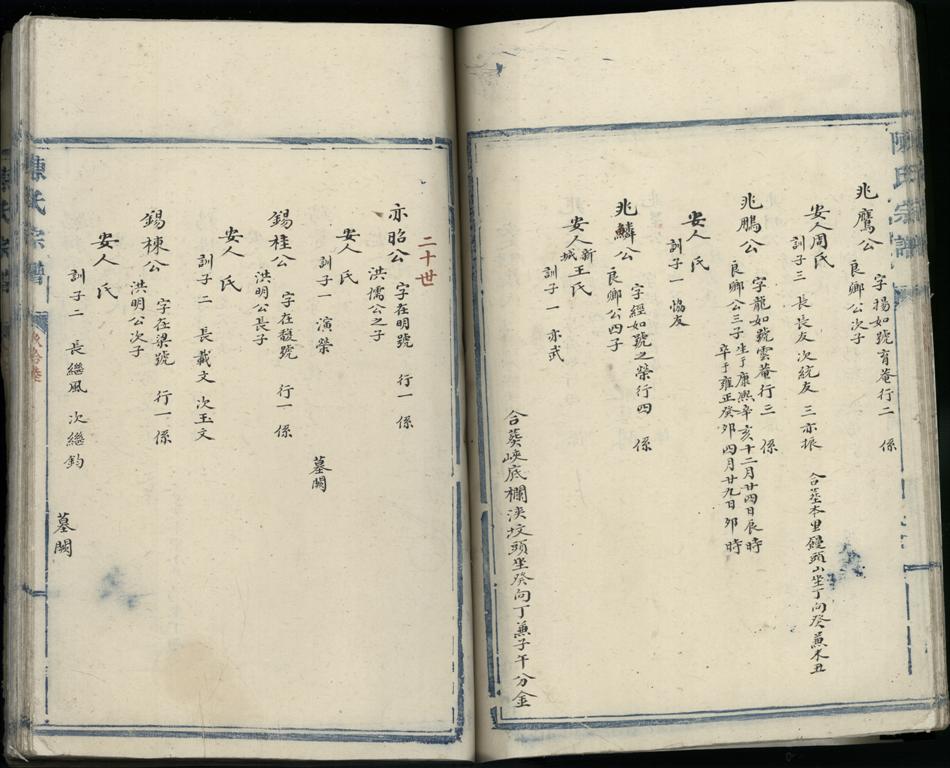 陳氏宗譜
兆鷹公 字揚如號育菴行二 係
良卿公次子
安人周氏
訓子三 長長友 次統友 三亦振
合葬本里饅頭山坐丁向癸兼未丑
兆鵬公 字龍如號雲菴行三 係
良卿公三子 生于康熙辛亥十二月廿四日辰時
卒于雍正癸卯四月廿九日卯時
安人 氏
訓子一 協友
兆鱗公 字經如號之榮行四 係
良卿公四子
安人新城王氏
訓子一 亦武
合葬峽底欄浹坟頭坐癸向丁兼子午分金
二十世
亦昭公 字在明號 行一 係
洪儒公之子
安人 氏
訓子一 演榮
墓闕
錫桂公 字在馥號 行一 係
洪明公長子
安人 氏
訓子二 長載文 次玉文
錫棟公 字在梁號 行一 係
洪明公次子
安人 氏
訓子二 長繼風 次繼鈞
墓闕
陳氏宗譜